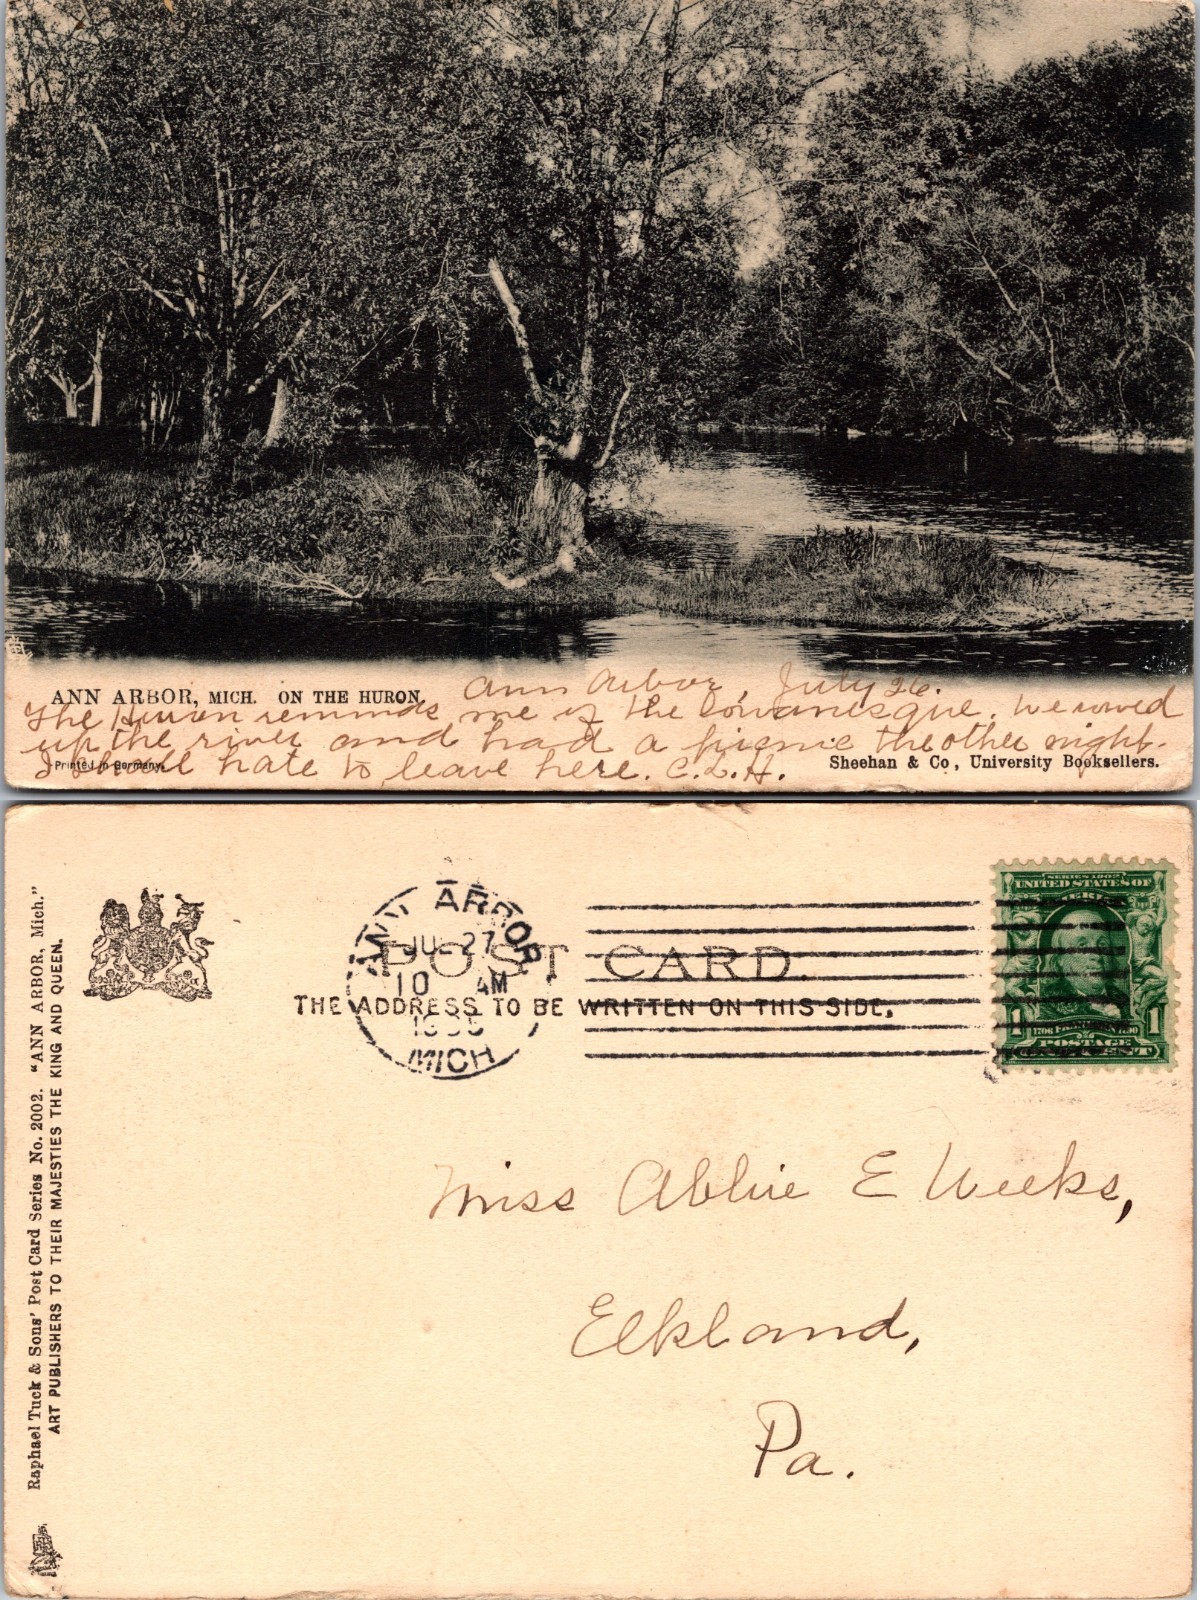 ANN ARBOR, MICH. ON THE HURON.
Ann Arbor, July 26.
The Huron reminds me of the Cowanesque. We rowed
up the river and had a picnic the other night.
I shall hate to leave here. C.L.H.
Printed in Germany.
Sheehan & Co, University Booksellers.
Raphael Tuck & Sons' Post Card Series No. 2002. "ANN ARBOR, Mich."
ART PUBLISHERS TO THEIR MAJESTIES THE KING AND QUEEN.
POST CARD.
THE ADDRESS TO BE WRITTEN ON THIS SIDE.
ANN ARBOR
JUL 27
10 AM
MICH
SERIES 1902
UNITED STATES OF
AMERICA
1 1706 FRANKLIN 1790 1
POSTAGE
ONE CENT
Miss Abbie E Weeks,
Elkland,
Pa.